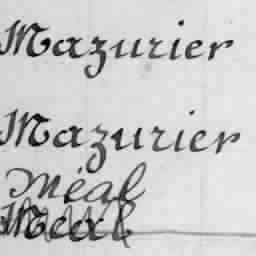 Mazurier
Mazurier
Méal
Méal